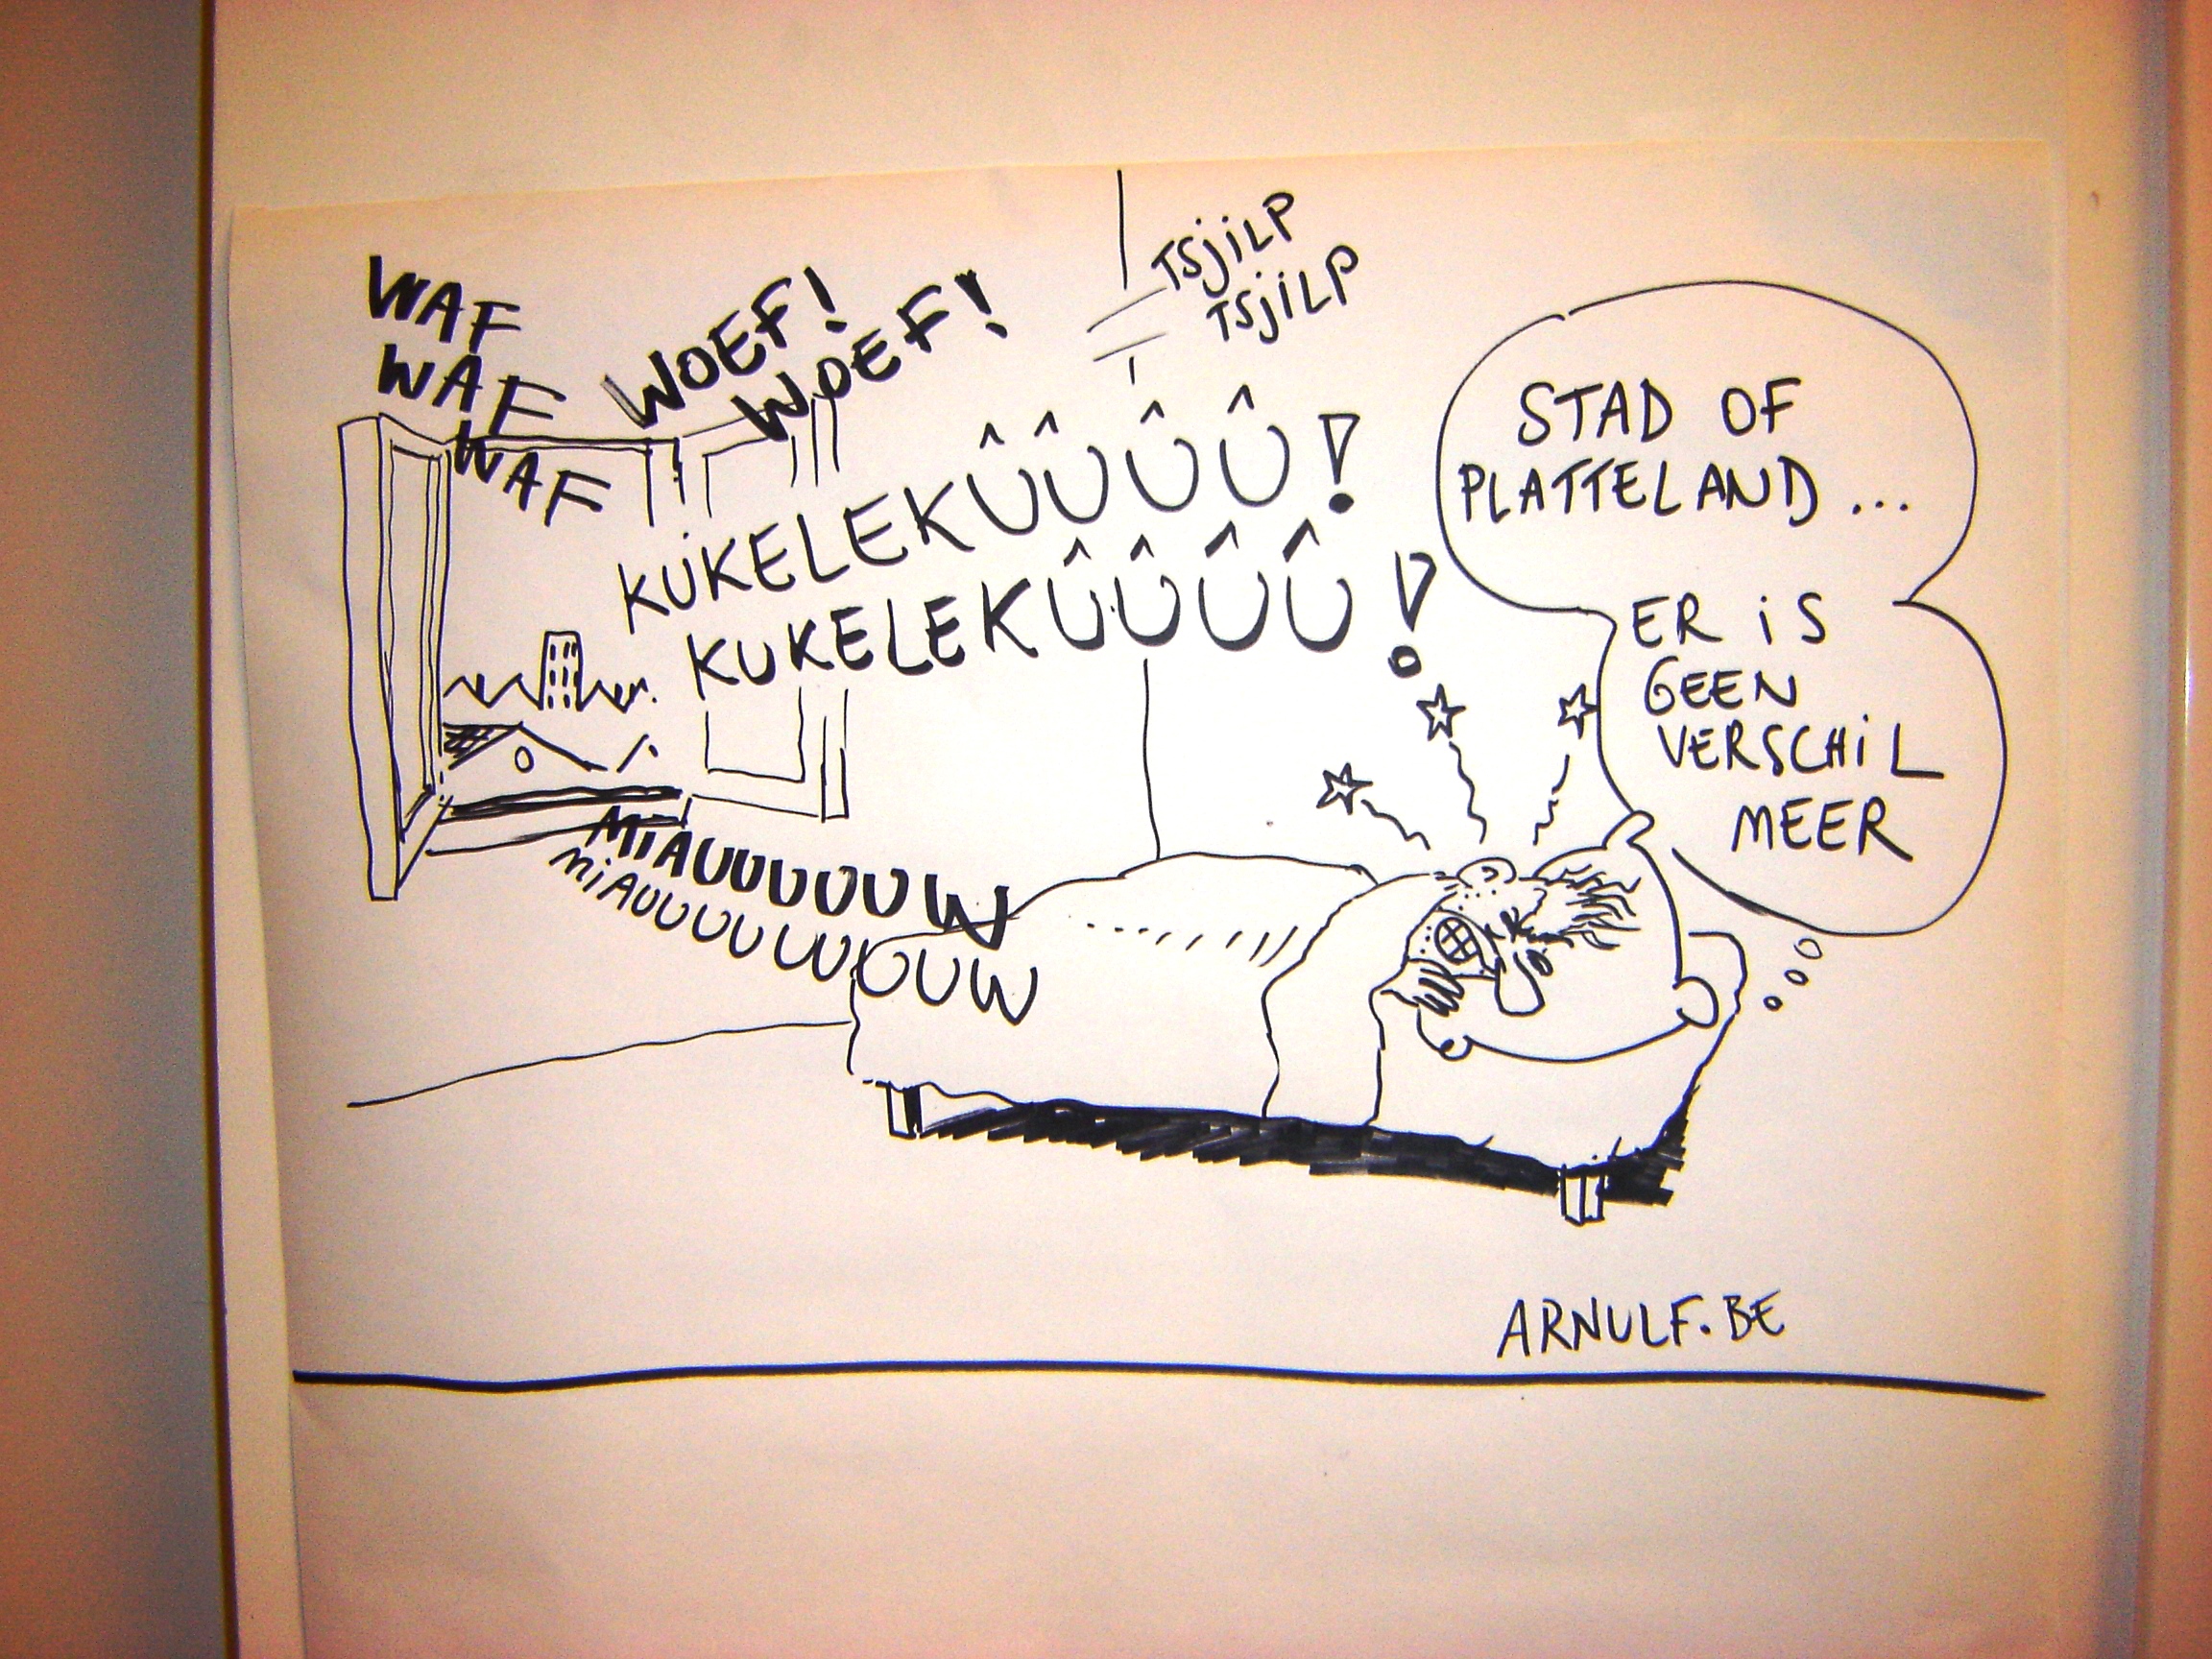 WAF
WAF
WAF
WOEF!
WOEF!
TSJILP
TSJILP
KUKELEKÛÛÛÛ!
KUKELEKÛÛÛÛ!
MIAUUUUUW
MIAUUUUUUUUW
STAD OF
PLATTELAND ...
ER IS
GEEN
VERSCHIL
MEER
ARNULF.BE